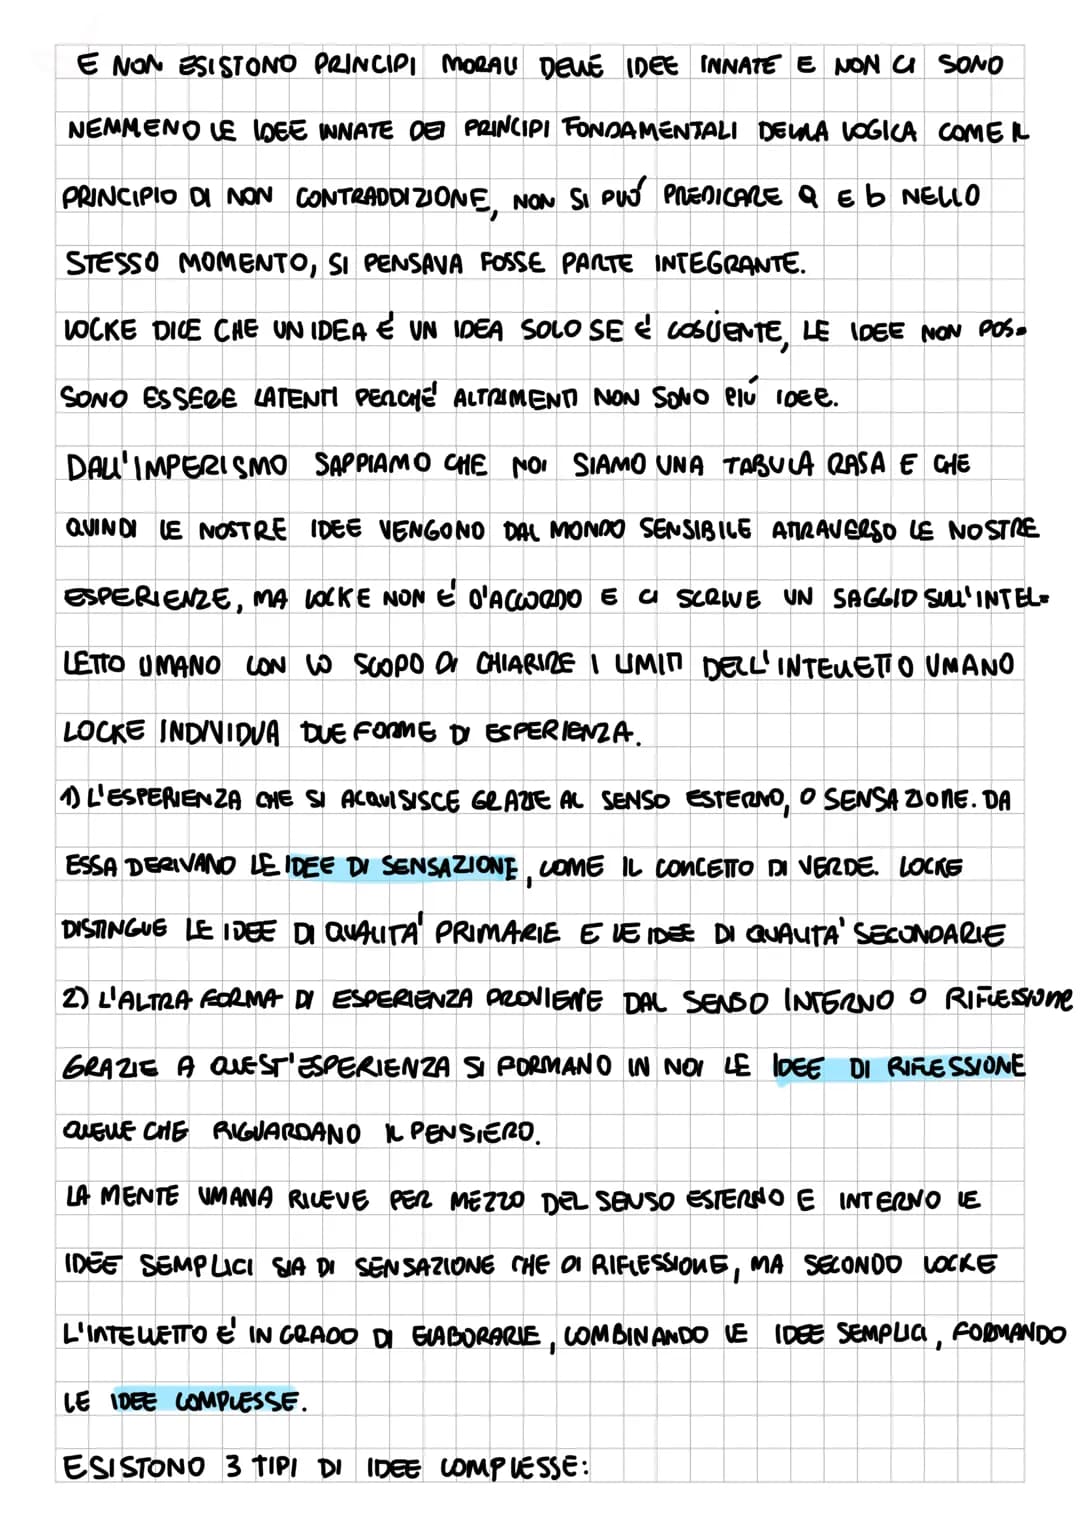 E NON ESISTONO PRINCIPI MORALI DELLE IDEE INNATE E NON CI SONO
NEMMENO LE IDEE INNATE DEI PRINCIPI FONDAMENTALI DELLA LOGICA COME IL
PRINCIPIO DI NON CONTRADDIZIONE, NON SI PUÓ PREDICARE a E b NELLO
STESSO MOMENTO, SI PENSAVA FOSSE PARTE INTEGRANTE.
LOCKE DICE CHE UN IDEA É UN IDEA SOLO SE É COSCIENTE, LE IDEE NON POS-
SONO ESSERE LATENTI PERCHÉ ALTRIMENTI NON SONO PIÚ IDEE.
DALL'IMPERISMO SAPPIAMO CHE NOI SIAMO UNA TABULA RASA E CHE
QUINDI LE NOSTRE IDEE VENGONO DAL MONDO SENSIBILE ATTRAVERSO LE NOSTRE
ESPERIENZE, MA LOCKE NON É D'ACCORDO E CI SCRIVE UN SAGGIO SULL'INTEL=
LETTO UMANO CON LO SCOPO DI CHIARIRE I LIMITI DELL'INTELLETTO UMANO
LOCKE INDIVIDUA DUE FORME DI ESPERIENZA.
1) L'ESPERIENZA CHE SI ACQUISISCE GRAZIE AL SENSO ESTERNO, O SENSAZIONE. DA
ESSA DERIVANO LE IDEE DI SENSAZIONE, COME IL CONCETTO DI VERDE. LOCKE
DISTINGUE LE IDEE DI QUALITA' PRIMARIE E LE IDEE DI QUALITA' SECONDARIE
2) L'ALTRA FORMA DI ESPERIENZA PROVIENE DAL SENSO INTERNO O RIFLESSIONE
GRAZIE A QUEST'ESPERIENZA SI FORMANO IN NOI LE IDEE DI RIFLESSIONE
QUELLE CHE RIGUARDANO IL PENSIERO.
LA MENTE UMANA RICEVE PER MEZZO DEL SENSO ESTERNO E INTERNO LE
IDEE SEMPLICI SIA DI SENSAZIONE CHE DI RIFLESSIONE, MA SECONDO LOCKE
L'INTELLETTO E' IN GRADO DI ELABORARLE, COMBINANDO LE IDEE SEMPLICI, FORMANDO
LE IDEE COMPLESSE.
ESISTONO 3 TIPI DI IDEE COMPLESSE: